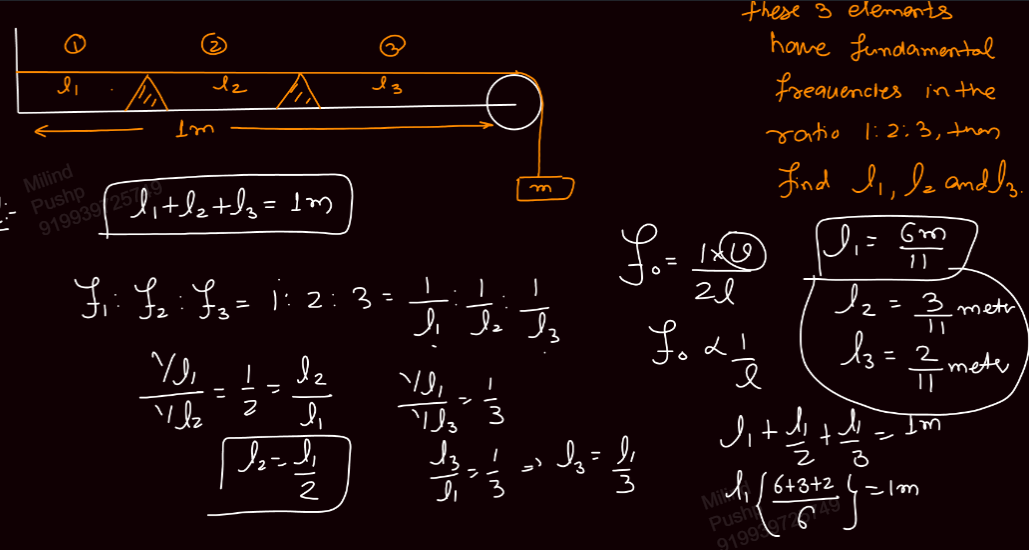 these 3 elements
have fundamental
frequencies in the
ratio 1:2:3, then
find l₁, l₂ and l₃.
① ② ③
l₁ l₂ l₃
1m
m
Milind
Pushp
l₁+l₂+l₃ = 1m
f₁ : f₂ : f₃ = 1 : 2 : 3 = 1/l₁ : 1/l₂ : 1/l₃
(1/l₁)/(1/l₂) = 1/2 = l₂/l₁
l₂ = l₁/2
(1/l₁)/(1/l₃) = 1/3
l₃/l₁ = 1/3 => l₃ = l₁/3
f₀ = 1×v/2l
f₀ ∝ 1/l
l₁ = 6m/11
l₂ = 3/11 metr
l₃ = 2/11 metr
l₁ + l₁/2 + l₁/3 = 1m
l₁ {(6+3+2)/6} = 1m
Milind
Pushp
919939725749